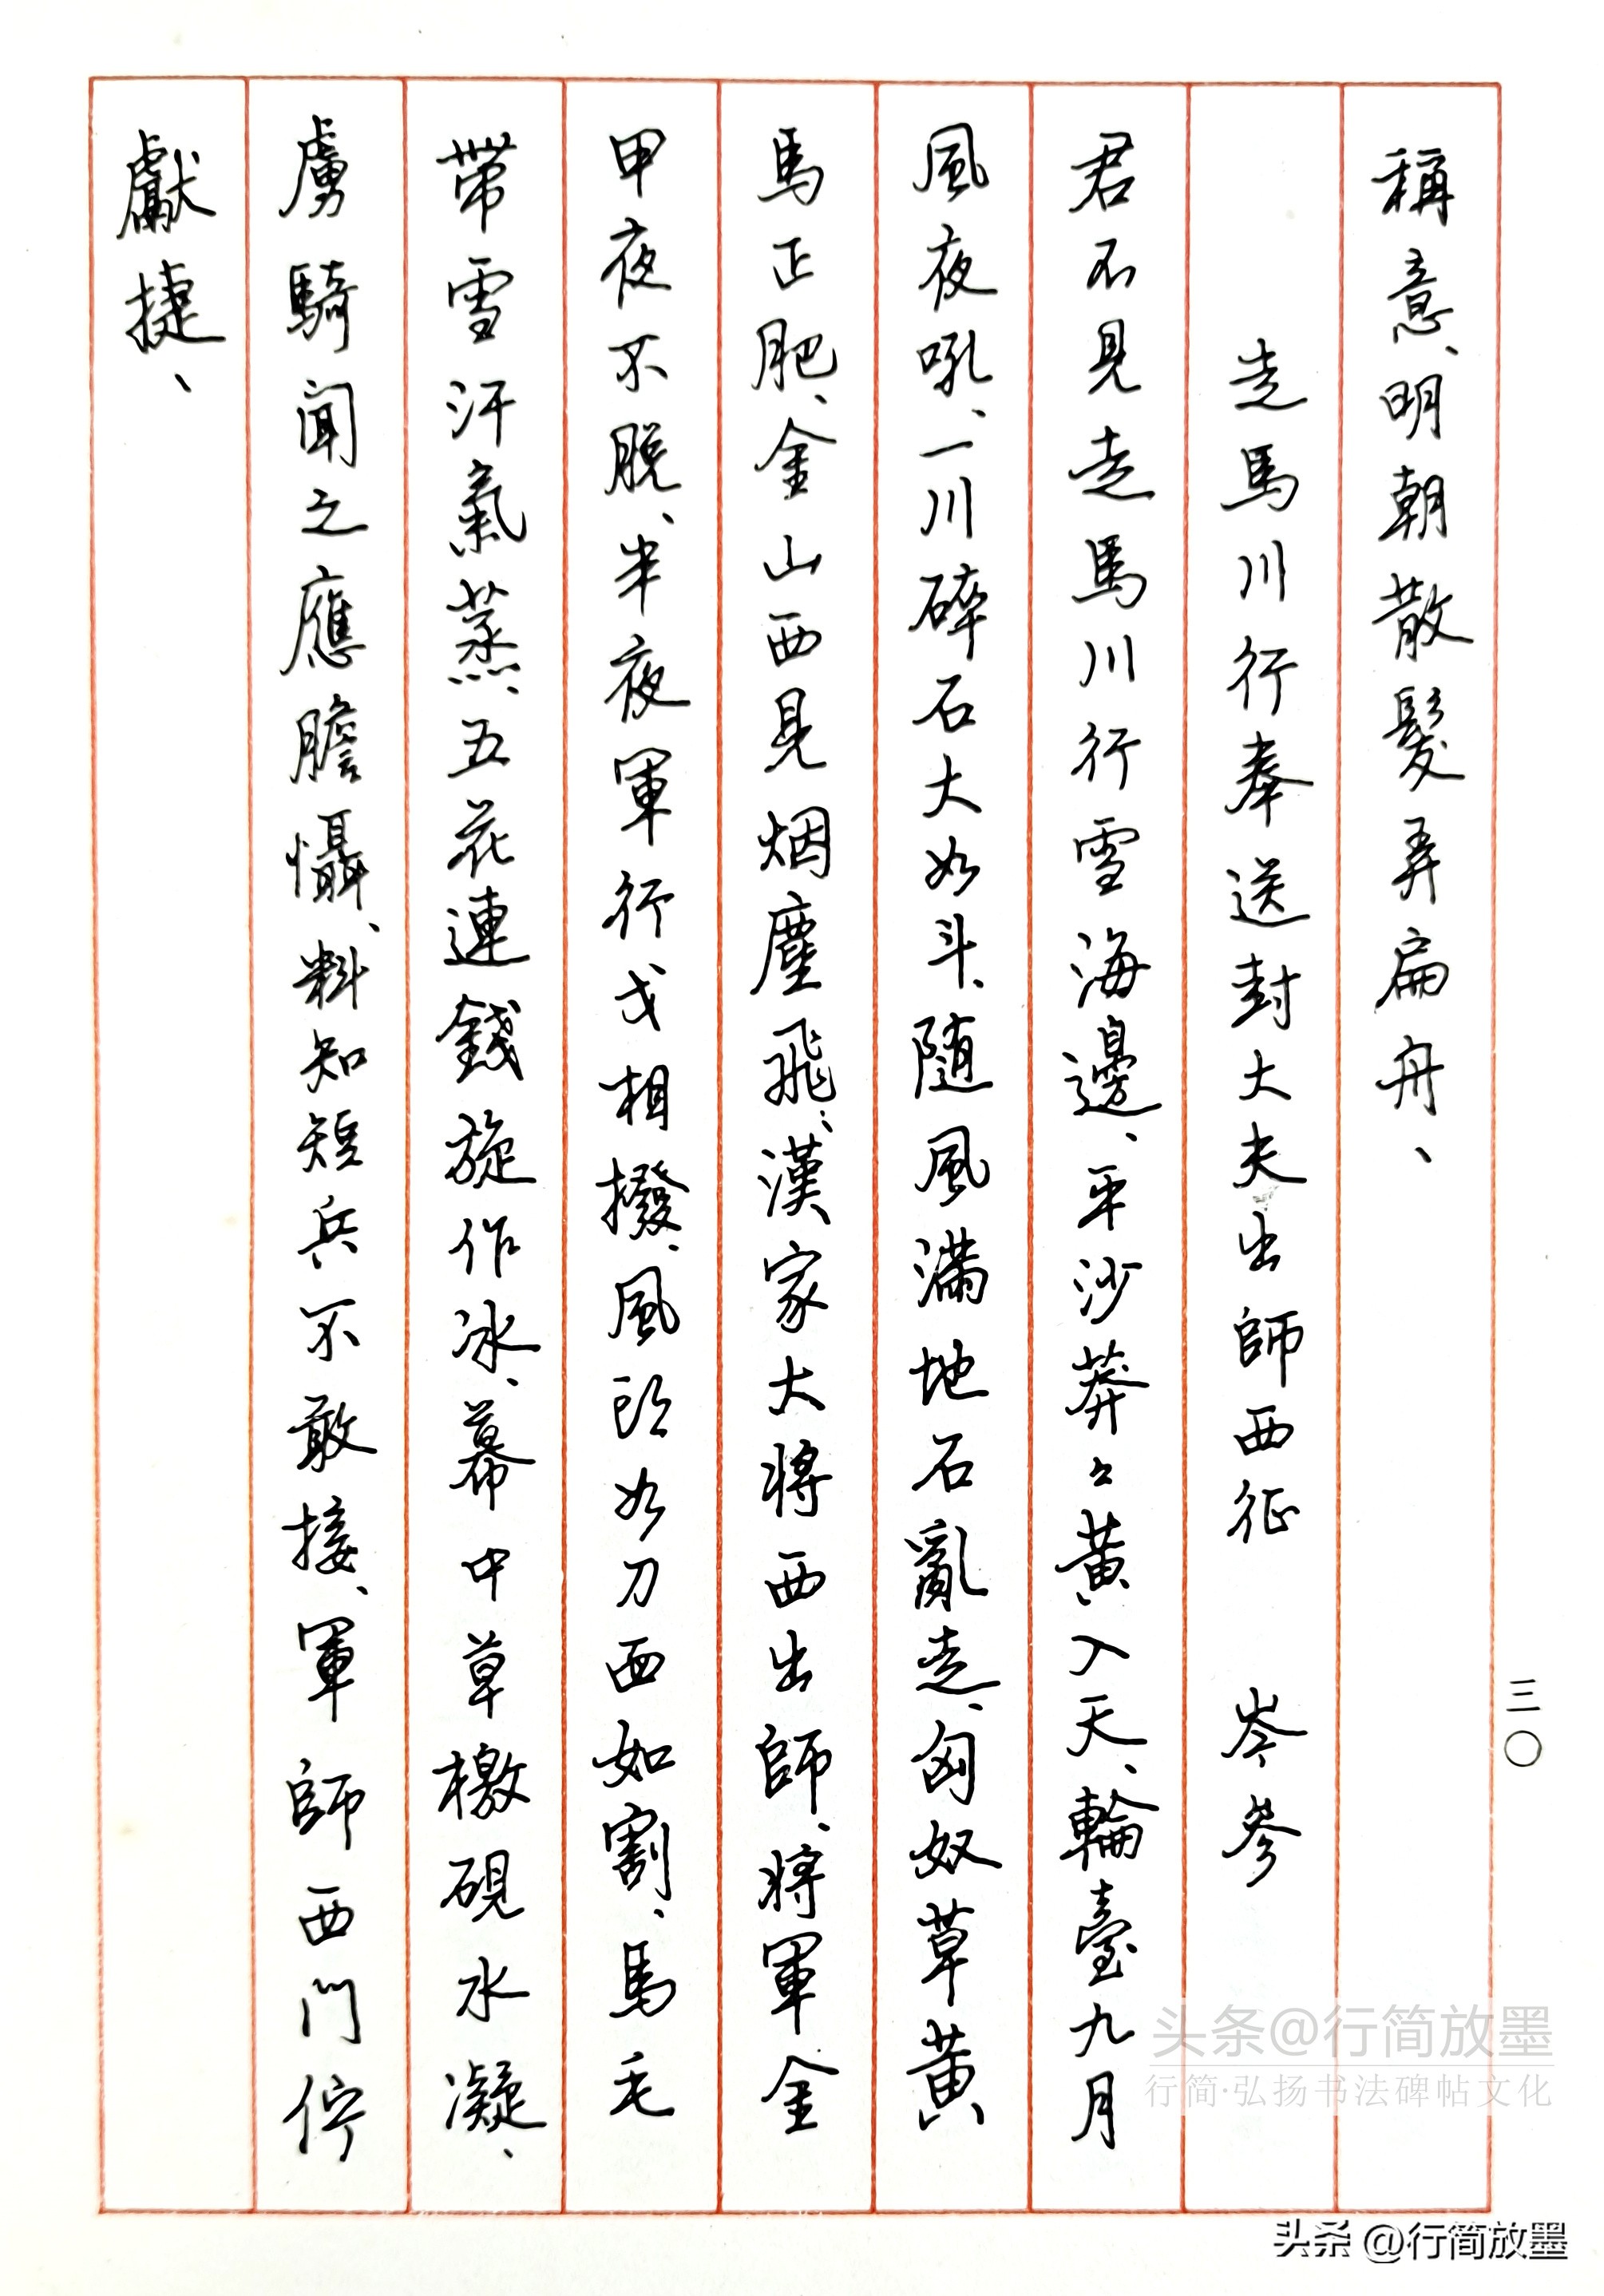 稱意、明朝散髮弄扁舟、
走馬川行奉送封大夫出師西征 岑參
君不見走馬川行雪海邊、平沙莽々黃入天、輪臺九月
風夜吼、一川碎石大如斗、隨風滿地石亂走、匈奴草黃
馬正肥、金山西見烟塵飛、漢家大將西出師、將軍金
甲夜不脫、半夜軍行戈相撥、風頭如刀面如割、馬毛
帶雪汗氣蒸、五花連錢旋作冰、幕中草檄硯水凝、
虜騎聞之應膽懾、料知短兵不敢接、軍師西門佇
獻捷、
三〇
头条@行简放墨
行简·弘扬书法碑帖文化
头条 @行简放墨